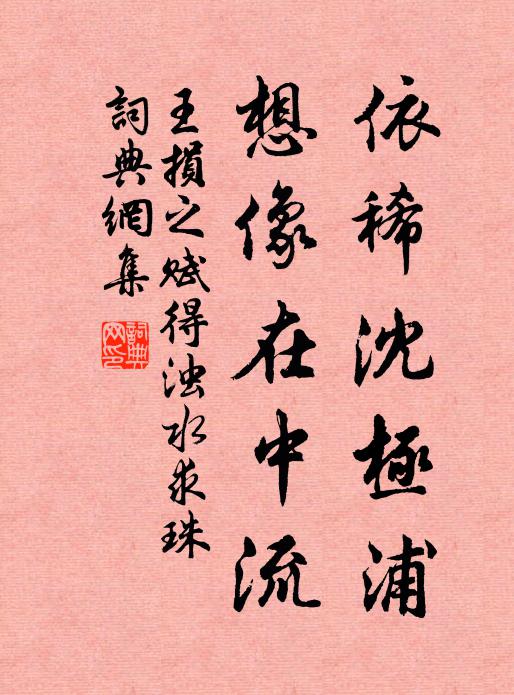 依稀沈極浦
想像在中流
王損之賦得浊水求珠
詞典網集
詞典网印